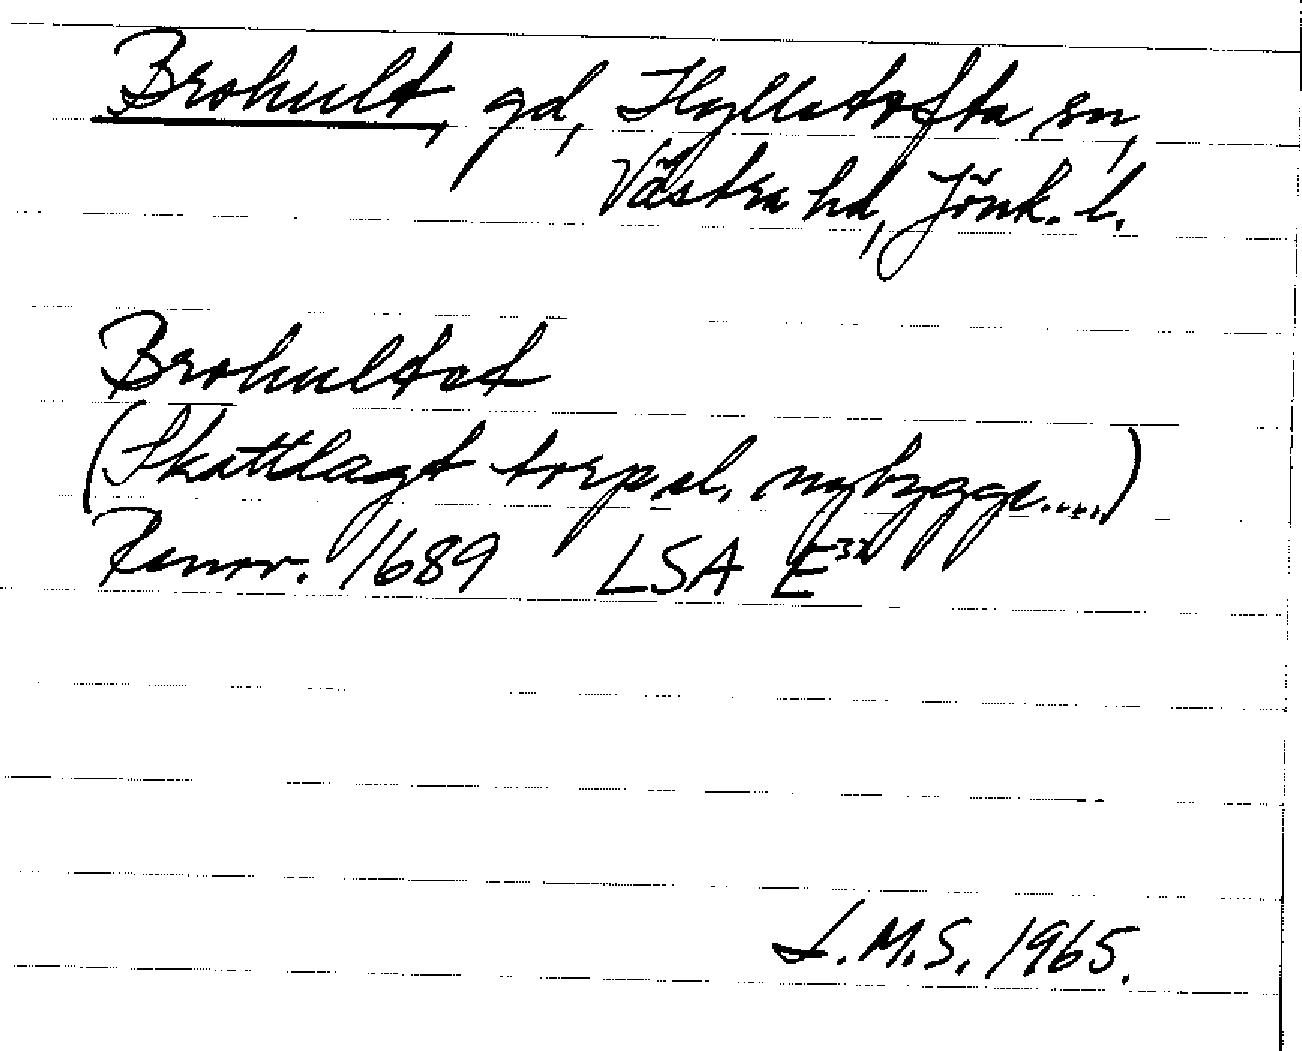 Brohult, gd, Hylletofta sn,
Västra hd, Jönk. l.
Brohultet
(Skattlagt torp el. nybygge....)
Renov. 1689 LSA E³²
L.M.S. 1965.